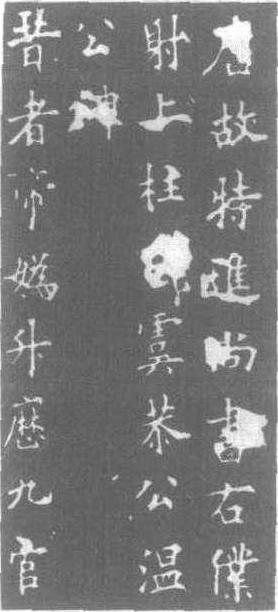 唐故特進尚書右僕
射上柱國虞恭公温
公碑
昔者帝媯升曆九官